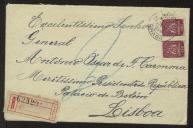 Excelentíssimo Senhor
General
António Oscar de F. Carmona
Meretíssimo Presidente República
Palacio de Belém
Lisboa